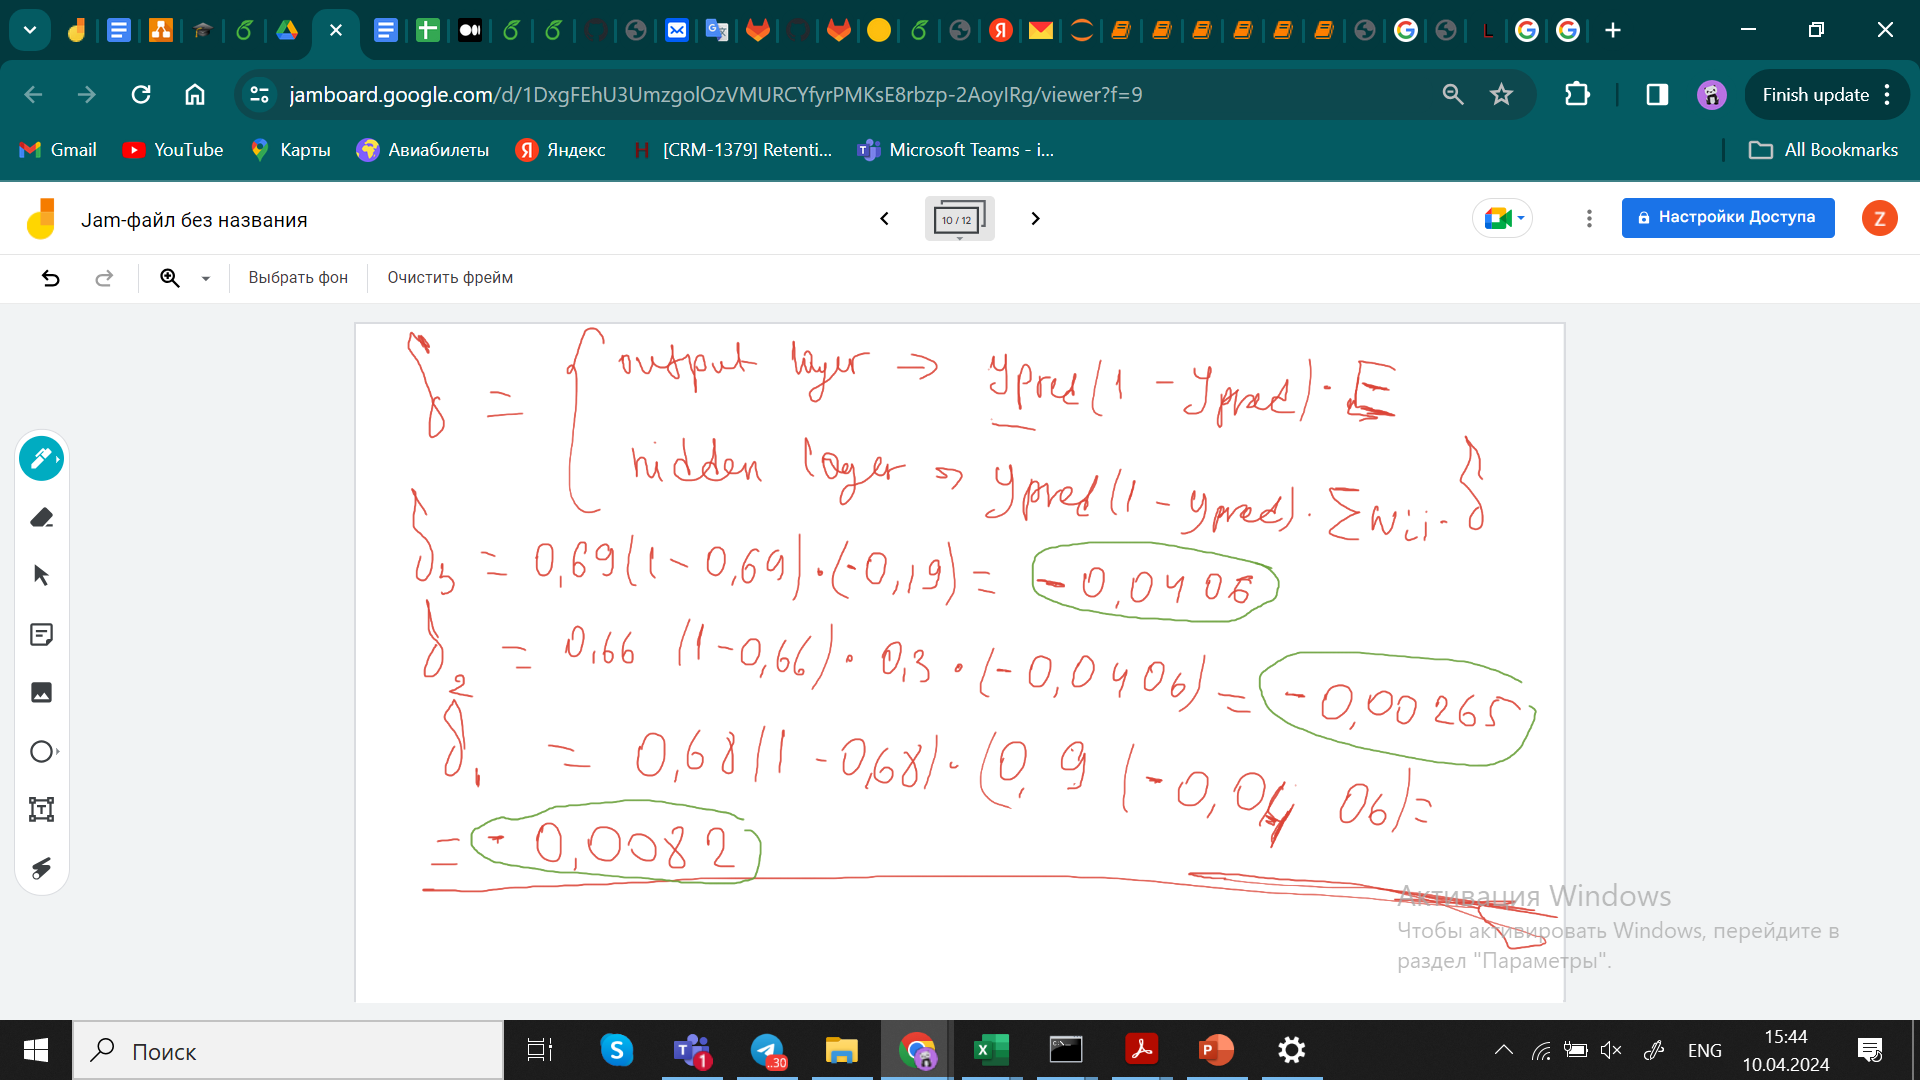 jamboard.google.com/d/1DxgFEhU3UmzgolOzVMURCYfyrPMKsE8rbzp-2AoyIRg/viewer?f=9
Finish update
Gmail
YouTube
Карты
Авиабилеты
Яндекс
[CRM-1379] Retenti...
Microsoft Teams - i...
All Bookmarks
Jam-файл без названия
10 / 12
Настройки Доступа
Z
Выбрать фон
Очистить фрейм
δ = { output layer → ypred(1 - ypred) · E
hidden layer → ypred(1 - ypred) · Σwij · δ
δ3 = 0,69(1 - 0,69) · (-0,19) = -0,0406
δ2 = 0,66 (1 - 0,66) · 0,3 · (-0,0406) = -0,00265
δ1 = 0,68(1 - 0,68) · (0,9 (-0,0406) =
= -0,0082
Активация Windows
Чтобы активировать Windows, перейдите в
раздел "Параметры".
Поиск
1
..30
ENG
15:44
10.04.2024